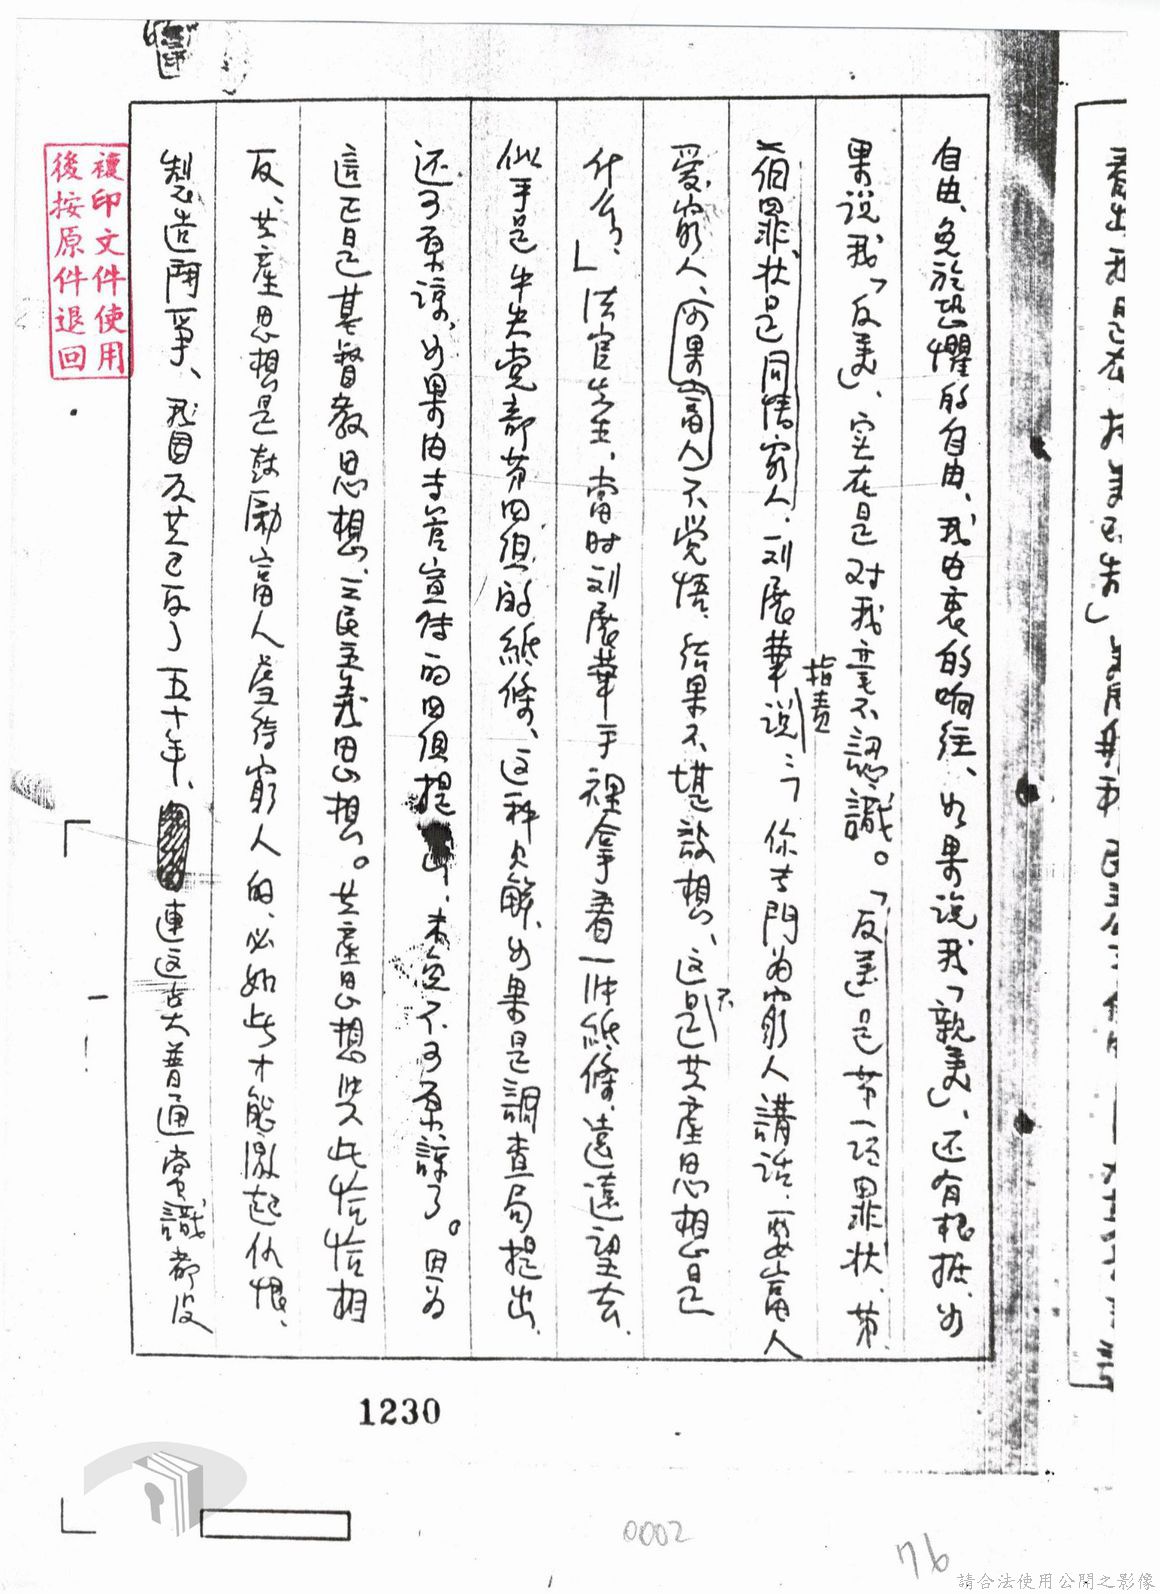 自由、免於恐懼的自由、我由衷的响往、如果說我「親美」、还有根據、如
果说我「反美」、实在是对我毫不認識。「反美」是第一项罪状、第
二個罪状是同情窮人、刘展華说
指責
：「你专門為窮人講話、要富人
爱窮人、如果富人不覺悟、結果不堪設想、这是
不
共產思想是
什么、」法官先生、當时刘展華手裡拿着一张紙條、遠遠望去、
似乎是中央党部第四組的紙條、这种欠解、如果是調查局提出、
还可原諒、如果由主管宣传的四組提出、未免不可原諒了。因為
這正是基督教思想、三民主義思想。共產思想與此恰恰相
反、共產思想是鼓勵富人虐待窮人的、必如此才能激起仇恨、
製造鬥爭、我国反共已反了五十年、連这点普通常識都没
複印文件使用
後按原件退回
1230
0002
76
請合法使用公開之影像